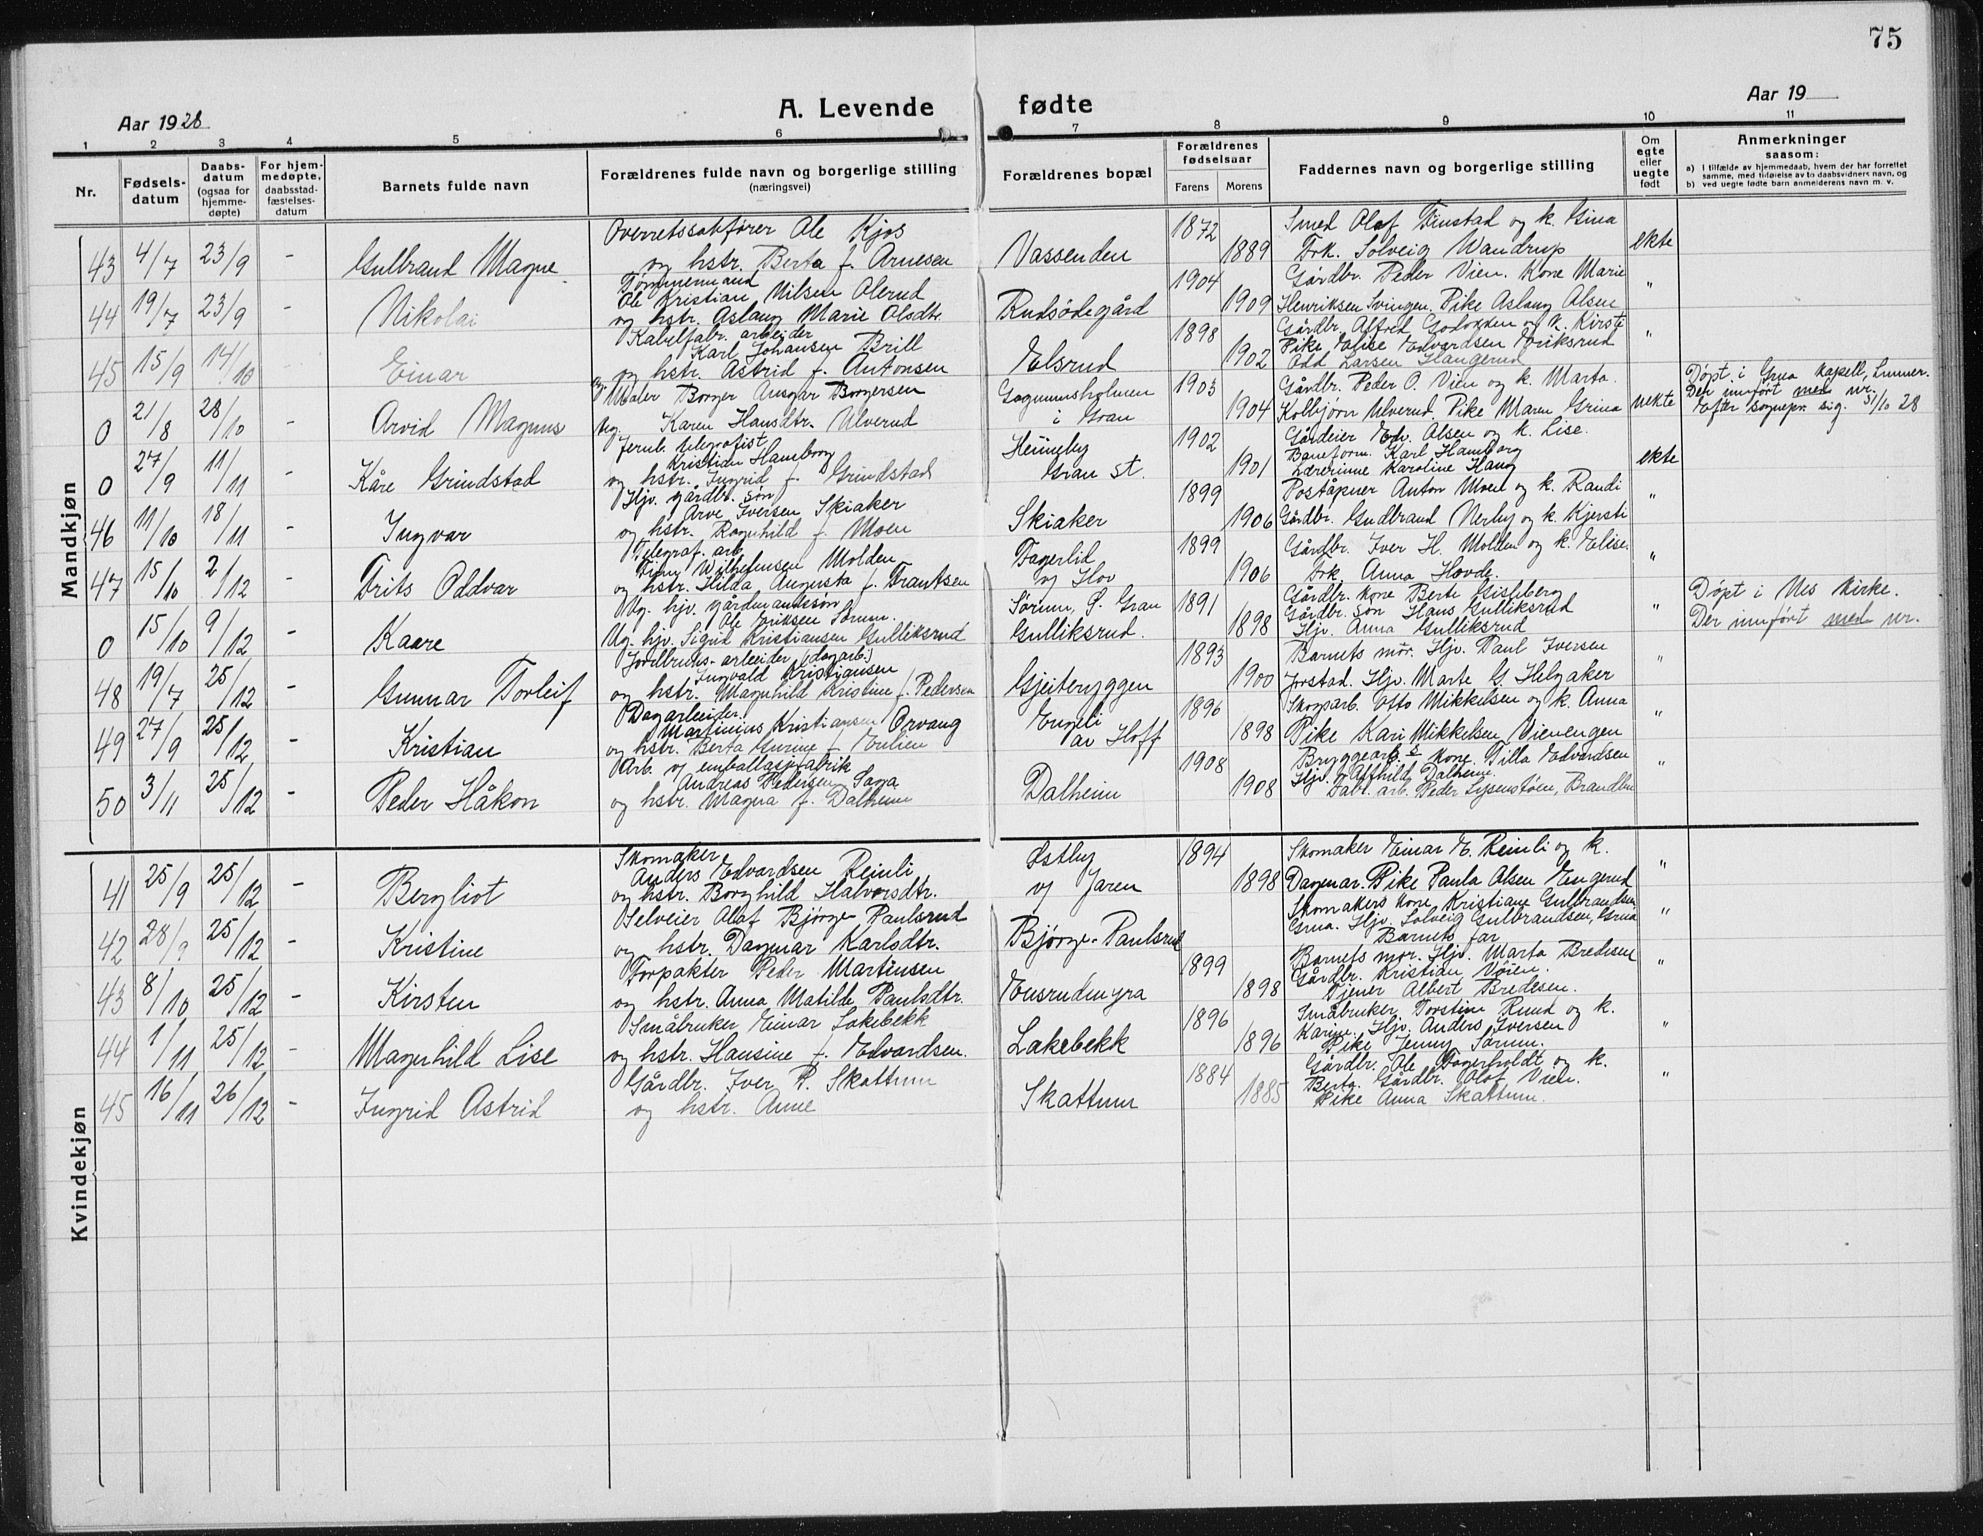 75
Aar 1928
A. Levende fødte
Aar 19
1 2 3 4 5 6 7 8 9 10 11
Nr.
Fødsels-datum
Daabs-datum (ogsaa for hjemme-døpte)
For hjem-medøpte, daabsstad-fæstelses-datum
Barnets fulde navn
Forældrenes fulde navn og borgerlige stilling (næringsvei)
Forældrenes bopæl
Forældrenes fødselsaar
Farens
Morens
Faddernes navn og borgerlige stilling
Om egte eller uegte født
Anmerkninger saasom:
a) I tilfælde av hjemmedaab, hvem der har forrettet samme, med tilføielse av to daabsvidners navn, og
b) ved uegte fødte barn anmelderens navn m. v.
Mandkjøn
43 4/7 23/9 - Gulbrand Magne
Overretssakfører Ole Kjos
og hstr. Berta f. Arnesen
Vassenden 1872 1889
Smed Olaf Finstad og k. Gina
Frk. Solveig Wandrup
ekte
44 19/7 23/9 - Nikolai
Tømmermand
Ole Kristian Nilsen Olerud
og hstr. Aslaug Marie Olsdtr.
Rudsødegård 1904 1909
Gårdbr. Peder Vien. Kone Marie
Henriksen Svingen. Pike Aslaug Olsen
"
45 15/9 14/10 - Einar
Kabelfabr. arbeider
Karl Johansen Brill
og hstr. Astrid f. Antonsen
Elsrud 1898 1902
Gårdbr. Alfred Godtxden og k. Kirsti
Pike Elise Edvardsen Eriksrud
Odd Larsen Haugerud
"
0 21/8 28/10 - Arvid Magnus
Ug. Maler Borger Ansgar Borgersen
Ug. Karen Hansdtr. Ulverud
Gagnumsholmen
i Gran
1903 1904
Gårdbr. Peder O. Vien og k. Marta.
Kolbjørn Ulverud. Pike Maren Grina
uekte
Døpt i Grua kapell, Lunner.
Der innført med nr.
Efter sogner. sig. 31/10 28
0 27/9 11/11 - Kåre Grindstad
Jernb. telegrafist
Kristian Hamborg
og hstr. Ingrid f. Grindstad
Heimeby
Gran st.
1902 1901
Gårdeier Edv. Olsen og k. Lise.
Baneform. Karl Hamborg
Lærerinne Karoline Haug
ekte
46 11/10 18/11 - Ingvar
Hjv. gårdbr. søn
Arve Iversen Skiaker
og hstr. Ragnhild f. Moen
Skiaker 1899 1906
Poståpner Anton Moen og k. Randi
Gårdbr. Gudbrand Nerby og k. Kjersti
"
47 15/10 2/12 - Frits Oddvar
Telegraf. arb.
Finn Wilhelmsen Molden
og hstr. Hilda Augusta f. Frantsen
Fagerlid
v/ Hov
1899 1906
Gårdbr. Iver H. Molden og k. Elise.
Frk. Anna Hovde.
"
0 15/10 9/12 - Kaare
Ug. hjv. gårdmandssøn
Ole Eriksen Sørum.
Ug. hjv. Sigrid Kristiansen Gulliksrud
Sørum, S. Gran
Gulliksrud.
1891 1898
Gårdbr. kone Berte Gisleberg
Gårdbr. søn Hans Gulliksrud
Hjv. Anna Gulliksrud
"
Døpt i Nes kirke.
Der innført med nr.
48 19/7 25/12 - Gunnar Torleif
Jordbruks-arbeider (dagarb.)
Ingvald Kristiansen
og hstr. Magnhild Kristine f. Pedersen
Gjeiteryggen 1893 1900
Barnets mor. Hjv. Paul Iversen
Jorstad. Hjv. Marte G. Helgaker
"
49 27/9 25/12 - Kristian
Dagarbeider.
Martinius Kristiansen Orvang
og hstr. Berta Gurine f. Eulien
Engeli
av Hoff
1896 1898
Skogarb. Otto Mikkelsen og k. Anna
Pike Kari Mikkelsen Vienengen
"
50 3/11 25/12 - Peder Håkon
Arb. v/ emballasjefabrik
Andreas Pedersen Saga
og hstr. Magna f. Dalheim
Dalheim 1908 1908
Bryggearb.s kone. Pilla Edvardsen
Hjv. Alfhild Dalheim.
Fabr. arb. Peder Lysenstøen, Brandbu
"
Kvindekjøn
41 25/9 25/12 - Bergliot
Skomaker
Anders Edvardsen Reinli
og hstr. Borghild Halvorsdtr.
Østby
v/ Jaren
1894 1898
Skomaker Einar E. Reinli og k.
Dagmar. Pike Paula Olsen Engerud
"
42 28/9 25/12 - Kristine
Selveier Olaf Bjørge-Paulsrud
og hstr. Dagmar Karlsdtr.
Bjørge-Paulsrud
Skomakers kone Kristiane Gulbrandsen
Grua. Hjv. Solveig Gulbrandsen, Grua
Barnets far
"
43 8/10 25/12 - Kirsten
Forpakter Peder Martinsen
og hstr. Anna Matilde Paulsdtr.
Ensrudmyra 1899 1898
Barnets mor. Hjv. Marta Bredesen
Gårdbr. Kristian Vøien.
Tjener Albert Bredesen.
"
44 1/11 25/12 - Magnhild Lise
Småbruker Einar Lakebekk
og hstr. Hansine f. Edvardsen.
Lakebekk 1896 1896
Småbruker Torstein Ruud og k.
Karine. Hjv. Anders Iversen
Pike Jenny Sørum.
"
45 16/11 26/12 - Ingrid Astrid
Gårdbr. Iver P. Skattum
og hstr. Anne
Skattum 1884 1885
Gårdbr. Ole Fagerholdt og k.
Berta. Gårdbr. Olof Vien.
Pike Anna Skattum.
"